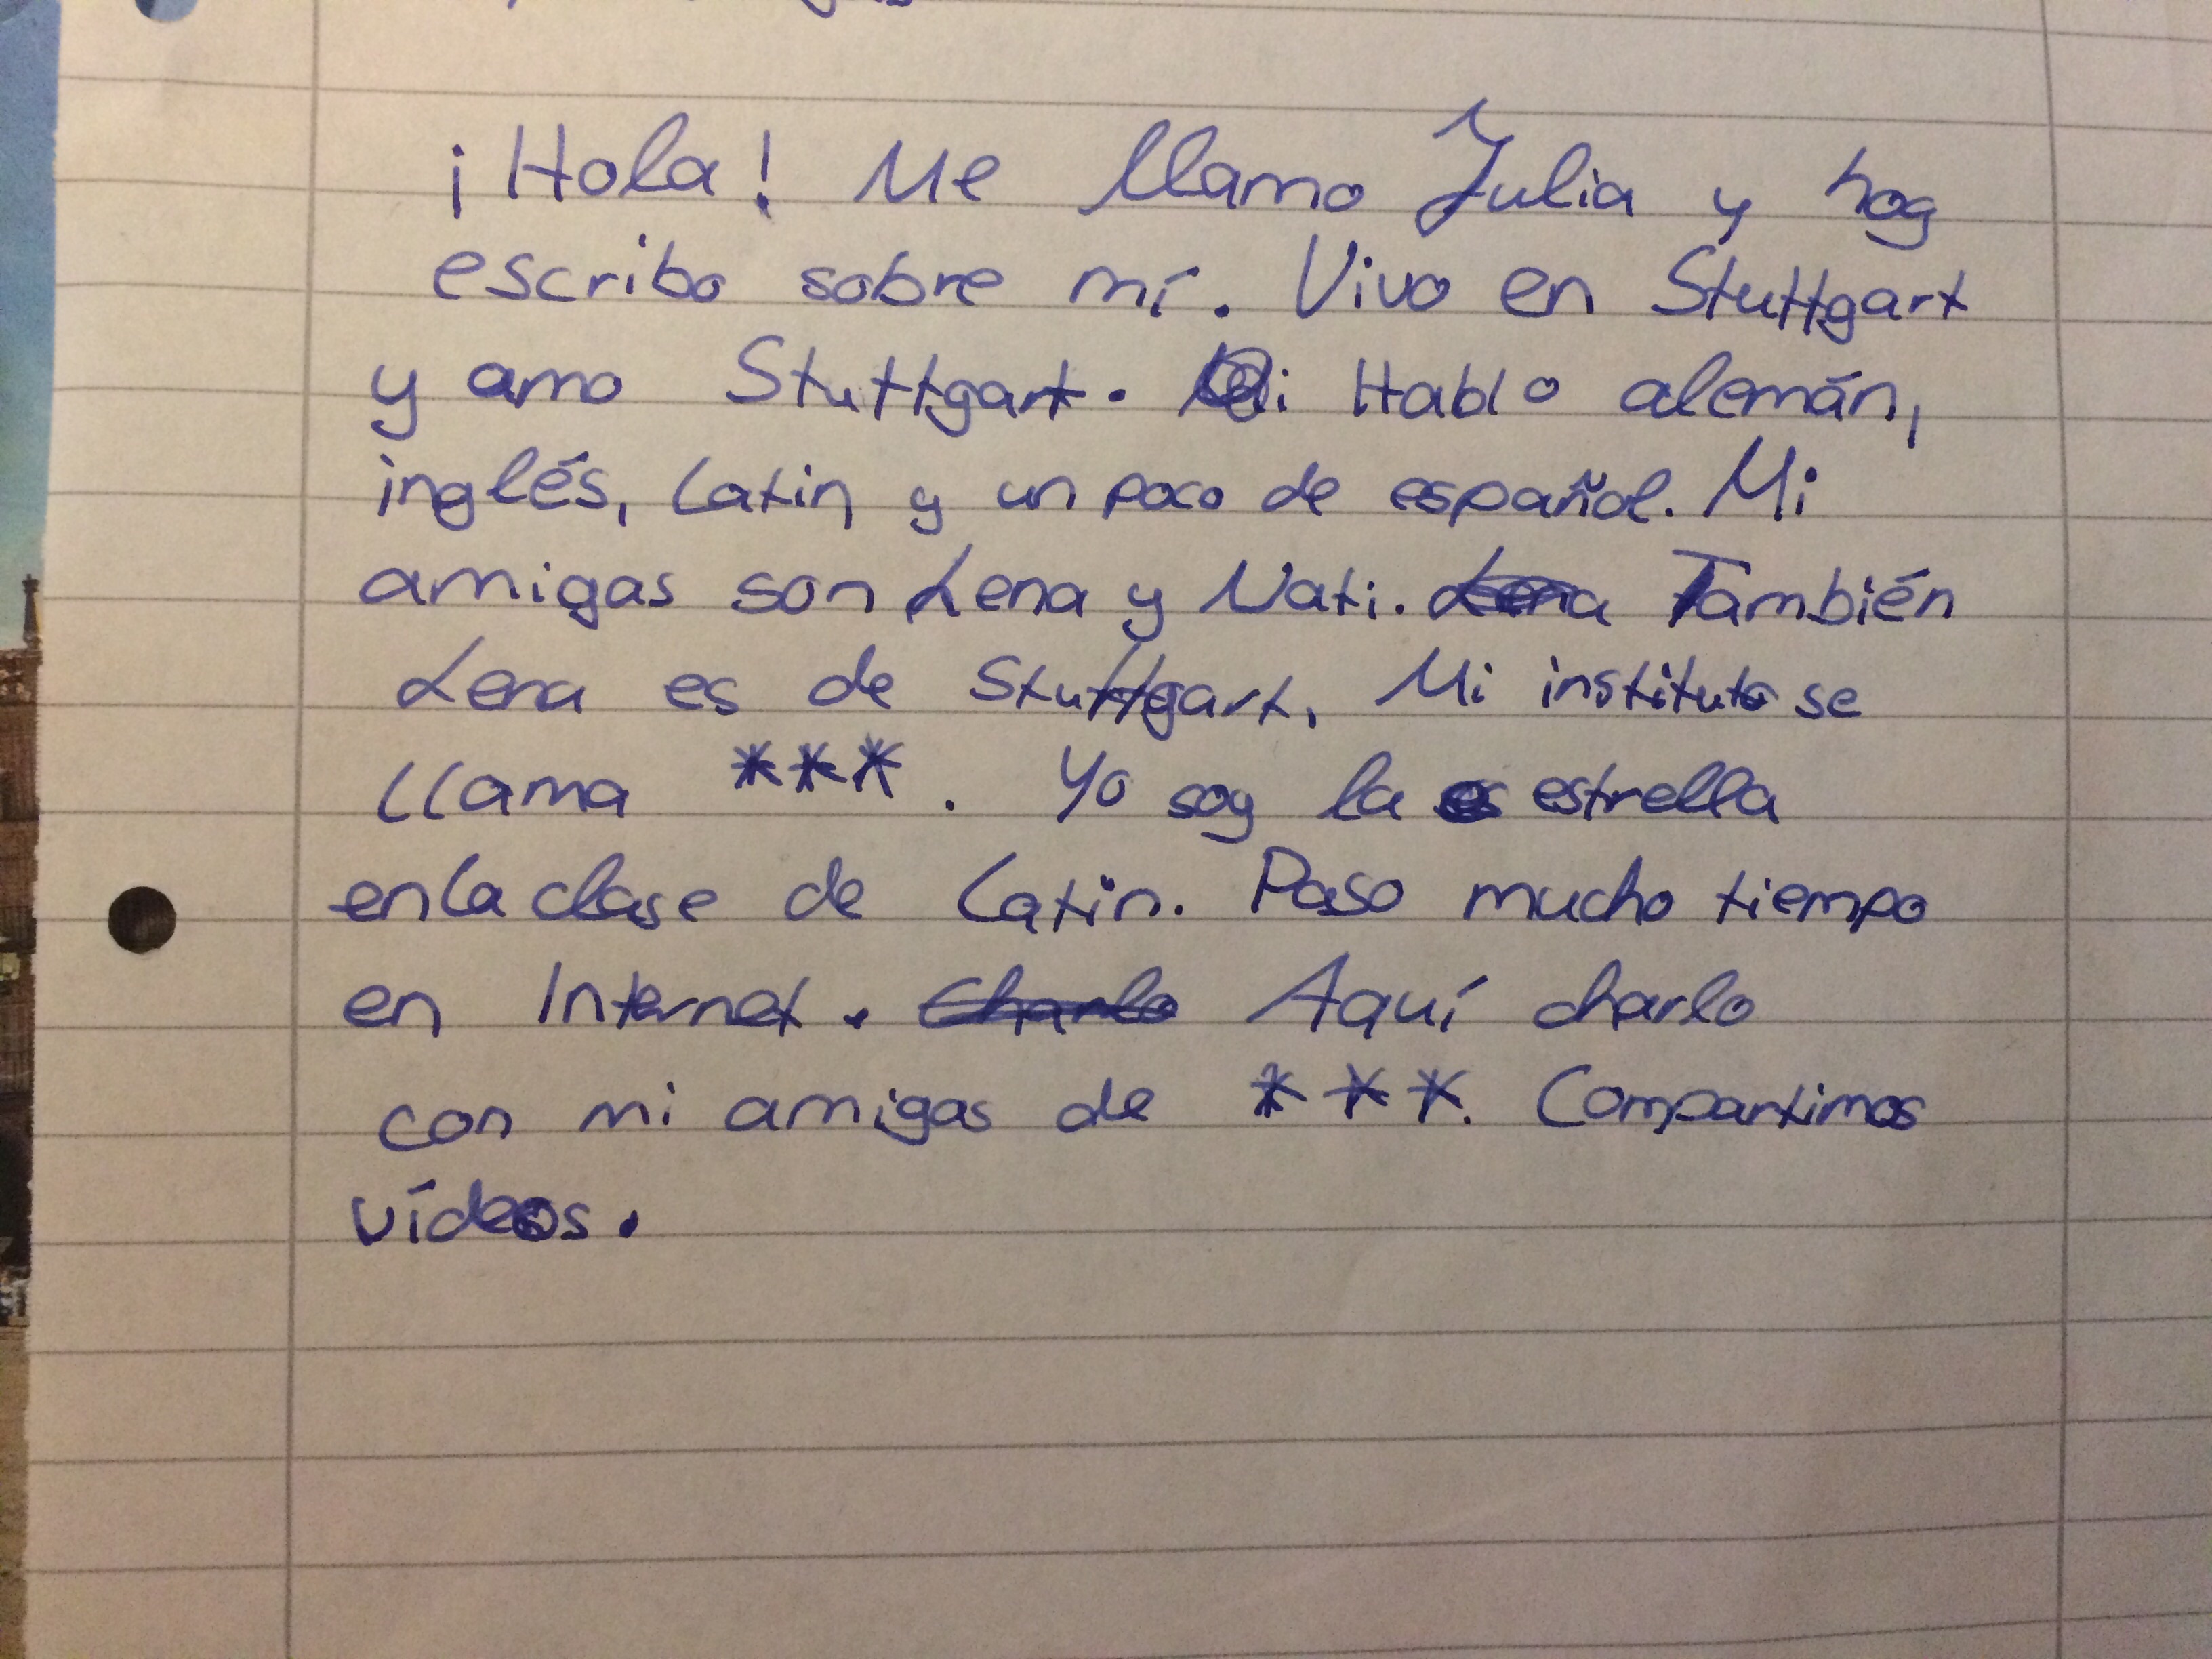 ¡Hola! Me llamo Julia y hoy
escribo sobre mí. Vivo en Stuttgart
y amo Stuttgart. Hablo alemán,
inglés, Latin y un poco de español. Mi
amigas son Lena y Nati. También
Lena es de Stuttgart. Mi instituto se
llama ***. Yo soy la estrella
en la clase de Latin. Paso mucho tiempo
en Internet. Aquí charlo
con mi amigas de ***. Compartimos
vídeos.